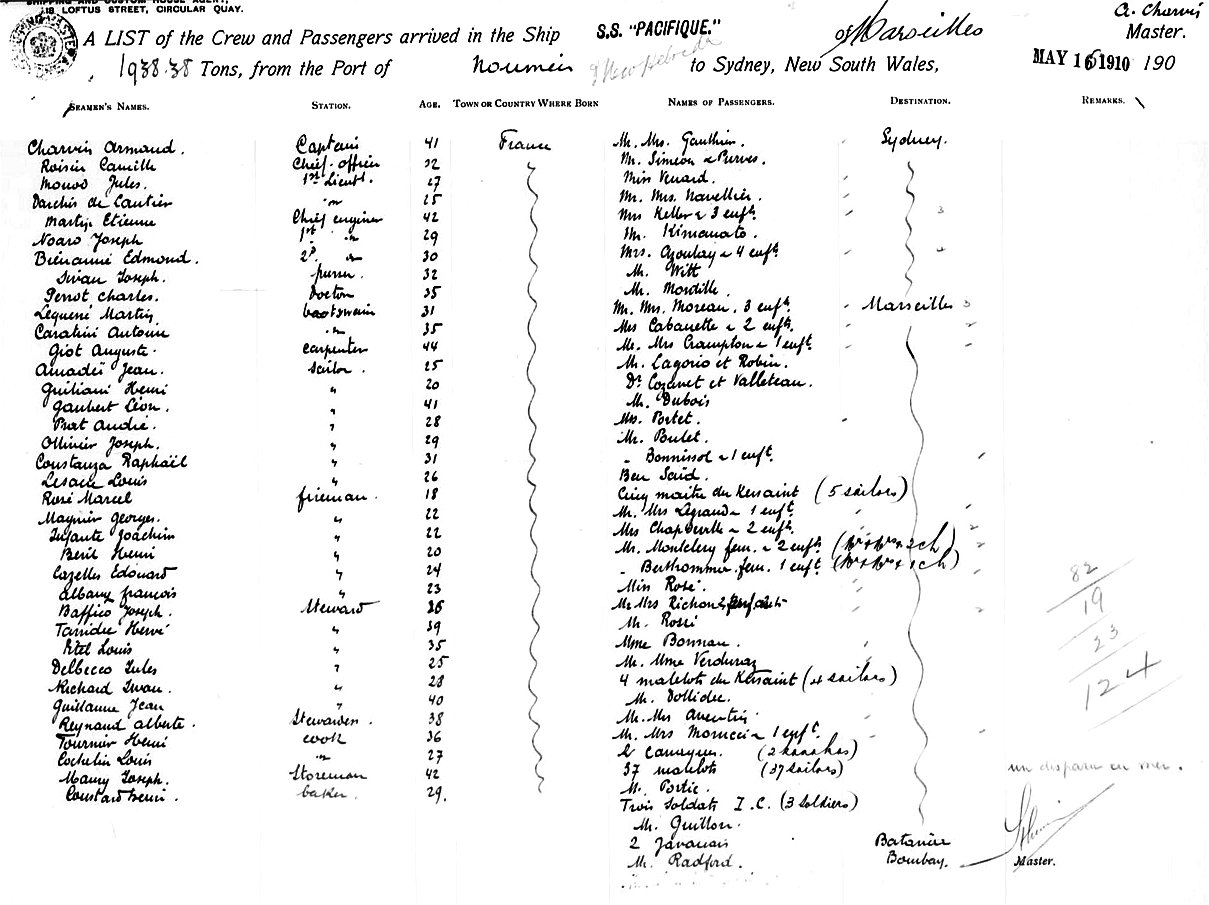 SHIPPING AND CUSTOM HOUSE AGENT,
18 LOFTUS STREET, CIRCULAR QUAY.
A LIST of the Crew and Passengers arrived in the Ship S.S. "PACIFIQUE." of Marseilles A. Charvin Master.
1938.38 Tons, from the Port of Noumea & New Hebrides to Sydney, New South Wales, MAY 16 1910 190
SEAMEN'S NAMES. STATION. AGE. TOWN OR COUNTRY WHERE BORN NAMES OF PASSENGERS. DESTINATION. REMARKS.
Charvin Armand. Captain 41 France Mr. Mrs. Gauthier. Sydney.
Roisin Camille Chief officer 32 Mr. Simeon & Purves.
Monod Jules. 1st Lieut. 27 Miss Venard.
Darchis de Lautier " 25 Mr. Mrs. Navellier.
Martin Etienne Chief engineer 42 Mrs Keller & 3 enfts. 3
Noaro Joseph 1st " 29 Mr. Kimanato.
Bienaimé Edmond. 2d " 30 Mrs. Azoulay & 4 enfts. 4
Sivan Joseph. purser. 32 Mr. Witt
Perrot Charles. Doctor 35 Mr. Mordille.
Lequené Martin boatswain 31 Mr. Mrs. Moreau. 3 enfts. Marseilles 3
Caratini Antoine " 35 Mrs Cabanette & 2 enfts. 2
Giot Auguste. carpenter 44 Mr. Mrs Crampton & 1 enft.
Amadeï Jean. Sailor. 25 Mr. Lagorio et Robin.
Guiliani Henri " 20 Dr. Cozanet et Valleteau.
Gaubert Léon. " 41 Mr. Dubois
Prat André. " 28 Mrs. Portet.
Ollivier Joseph. " 29 Mr. Bulet.
Constanza Raphaël " 31 " Bonnissol & 1 enft.
Lesage Louis " 26 Ben Saïd.
Rosé Marcel fireman. 18 Cinq maitre du Kersaint (5 sailors)
Maynier Georges. " 22 Mr. Mrs Legrand & 1 enft.
Infante Joachim " 22 Mrs Chapdeville & 2 enfts. 2
Beril Henri " 20 Mr. Montclery fem. & 2 enfts. 2
Cazelles Edouard " 24 " Berthommier fem. 1 enft.
Albany françois " 23 Miss Rosé.
Baffico Joseph. Steward 36 Mr Mrs Richon 2 enfants 2
Tarridec Hervé " 39 Mr. Rossi
Petel Louis " 35 Mme Bonnau.
Delbecco Jules " 25 Mr. Mme Verduraz
Richard Iwan. " 28 4 matelots du Kersaint (4 sailors)
Guillaume Jean " 40 Mr. Dollidec.
Reynaud Alberte. Stewardess. 38 Mr. Mrs Aventin
Tournier Henri cook 36 Mr. Mrs Morucci & 1 enft.
Cochelin Louis " 27 2 Canaques. (2 kanakas)
Maury Joseph. Storeman 42 37 matelots (37 sailors)
Coustard Henri. baker. 29. Mr. Portic.
Trois soldats I.C. (3 soldiers)
Mr. Guillon.
2 Javanais Batavia
Mr. Radford. Bombay.
82
19
23
124
un disparu en mer.
Master.